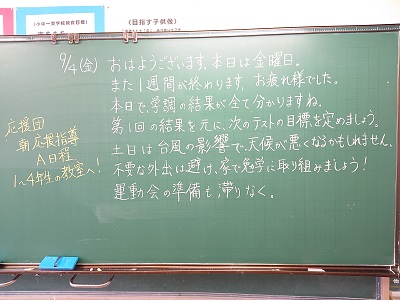 (小中一貫学校教育目標)
(目指す子供像)
9/4(金) おはようございます。本日は金曜日。
また1週間が終わります。お疲れ様でした。
本日で、学調の結果が全て分かりますね。
第1回の結果を元に、次のテストの目標を定めましょう。
土日は台風の影響で、天候が悪くなるかもしれません。
不要な外出は避け、家で勉学に取り組みましょう！
運動会の準備も滞りなく。
応援団
朝応援指導
A日程
1〜4年生の教室へ！